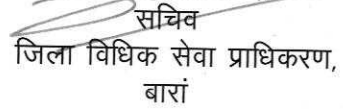 सचिव
जिला विधिक सेवा प्राधिकरण,
बारां